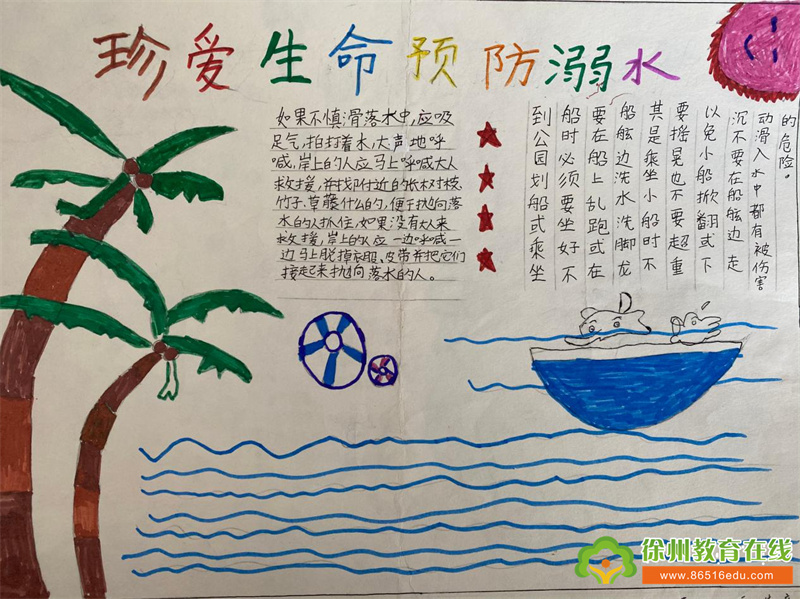 珍爱生命预防溺水
如果不慎滑落水中,应吸
足气,拍打着水,大声地呼
喊,岸上的人应马上呼喊大人
救援,并找附近的长木棍、
竹子、草藤什么的,便于抛向落
水的人抓住,如果没有大人来
救援,岸上的人应一边呼喊一
边马上脱掉衣服、皮带并把它们
接起来抛向落水的人。
到公园划船或乘坐
船时必须要坐好不
要在船上乱跑或在
船舷边洗水洗脚龙
其是乘坐小船时不
要摇晃也不要超重
以免小船掀翻或下
沉不要在船舷边走
动滑入水中都有被伤害
的危险。
徐州教育在线
www.86516edu.com